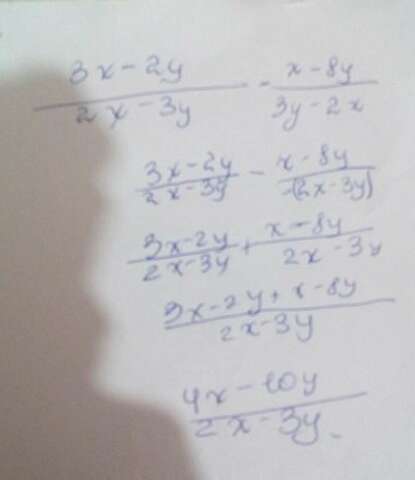 3x-2y / 2x-3y - x-8y / 3y-2x
3x-2y / 2x-3y - x-8y / -(2x-3y)
3x-2y / 2x-3y + x-8y / 2x-3y
3x-2y+x-8y / 2x-3y
4x-10y / 2x-3y